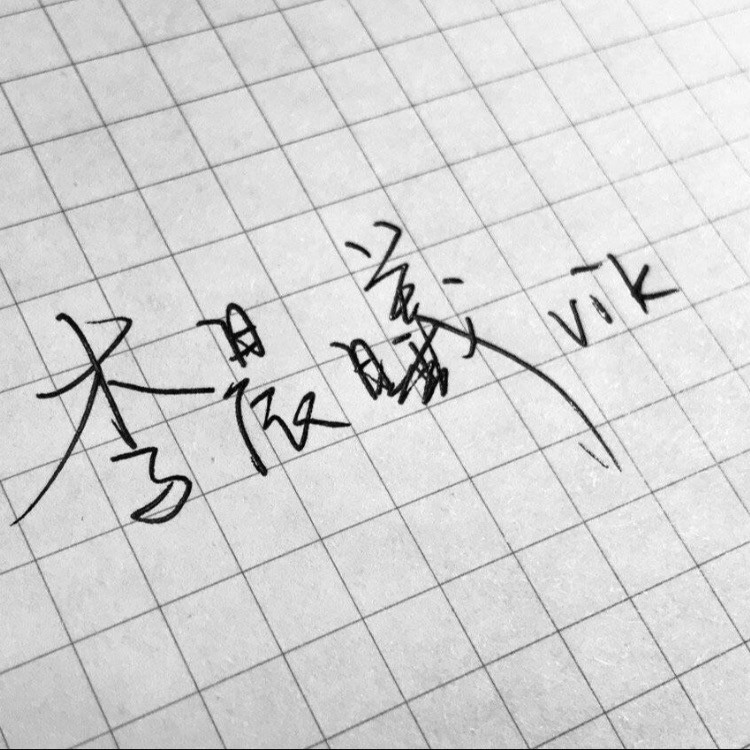 李晨曦 vik